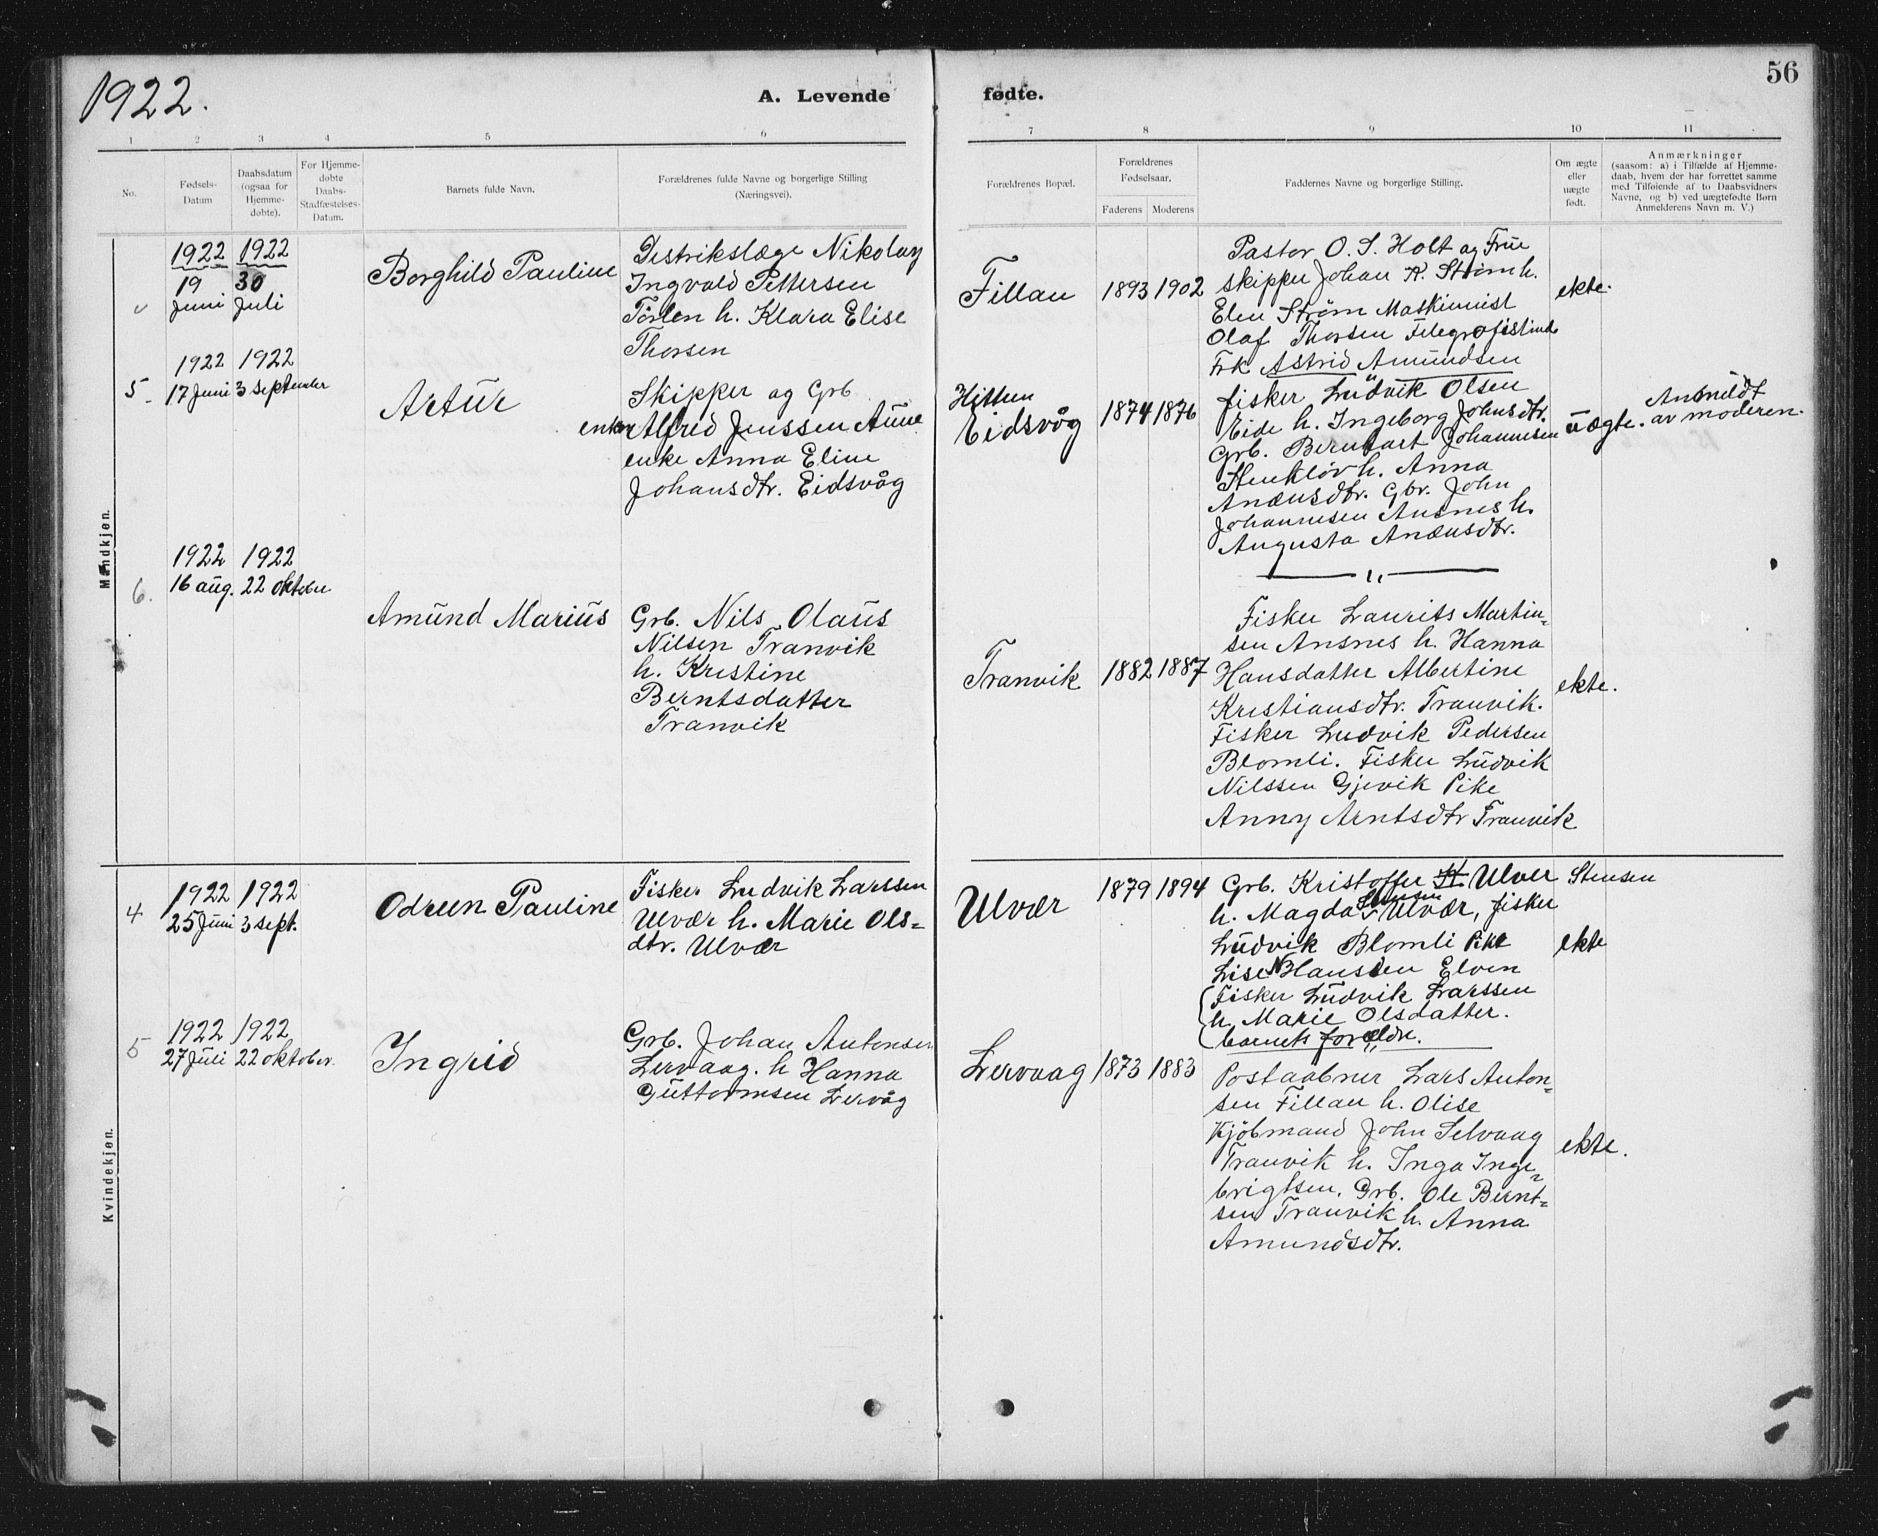 1922.
A. Levende
fødte.
56
1
2
3
4
5
6
7
8
9
10
11
No.
Fødsels-
Datum
Daabsdatum
(ogsaa for
Hjemme-
døbte).
For Hjemme-
døbte
Daabs-
Stadfæstelses-
Datum.
Barnets fulde Navn.
Forældrenes fulde Navne og borgerlige Stilling
(Næringsvei).
Forældrenes Bopæl.
Forældrenes
Fødselsaar.
Faderens
Moderens
Faddernes Navne og borgerlige Stilling.
Om ægte
eller
uægte
født.
Anmærkninger
(saasom: a) i Tilfælde af Hjemme-
daab, hvem der har forrettet samme
med Tilføiende af to Daabsvidners
Navne, og b) ved uægtefødte Børn
Anmelderens Navn m. V.)
Mandkjøn.
1922 1922
19 30
Juni Juli
Borghild Pauline
Distrikslæge Nikolay
Ingvald Pettersen
h. Klara Elise
Thorsen
Fillan
1893 1902
Pastor O. S. Holt og Frue
skipper Johan A. Strøm h.
Elen Strøm Maskinmist
Olaf Thorsen
Frk Astrid Amundsen
ekte.
5
1922 1922
17 Juni 3 september
Artur
Skipper og Grb
enkem Alfred Jenssen Aune
enke Anna Eline
Johansdtr. Eidsvåg
Hitteren
Eidsvåg
1874 1876
fisker Ludvik Olsen
Eide h. Ingeborg Johnsdtr.
Grb. Bernhart Johannesen
h. Anna
Anænsdtr. Gbr. John
Johannesen Ansnes h.
Augusta Anænsdtr.
"
uægte.
Anmeldt
av moderen.
6.
1922 1922
16 aug. 22 oktober
Amund Marius
Grb. Nils Olaus
Nilsen Tranvik
h. Kristine
Berntsdatter
Tranvik
Tranvik
1882 1887
Fisker Laurits Martin-
sen Ansnes h. Hanna
Hansdatter Albertine
Kristiansdtr. Tranvik.
Fisker Ludvik Pedersen
Blomli. Fisker Ludvik
Nilssen Gjevik Pike
Anny Arntsdtr Tranvik
ekte.
Kvindekjøn.
4
1922 1922
25 Juni 3 sept.
Odrun Pauline
Fisker Ludvik Larssen
Ulvær h. Marie Ols-
dtr. Ulvær
Ulvær
1879 1894
Grb. Kristoffer Ulver Stensen
h. Magda Stensen Ulvær, fisker
Ludvik Blomli Pike
Lise N Hansden Elven
(Fisker Ludvik Larssen
h. Marie Olsdatter.
barnets forældre.
ekte
5
1922 1922
27 Juli 22 oktober.
Ingrid
Grb. Johan Antonsen
Lervaag. h Hanna
Guttormsen Lervåg
Lervaag
1873 1883
Postaabner Lars Anton-
sen Fillan h. Olise
Kjøbmand John Selvaag
Tranvik h. Inga Inge-
brigtsen. Grb. Ole Bernt-
sen Tranvik h. Anna
Amundsdtr.
ekte.